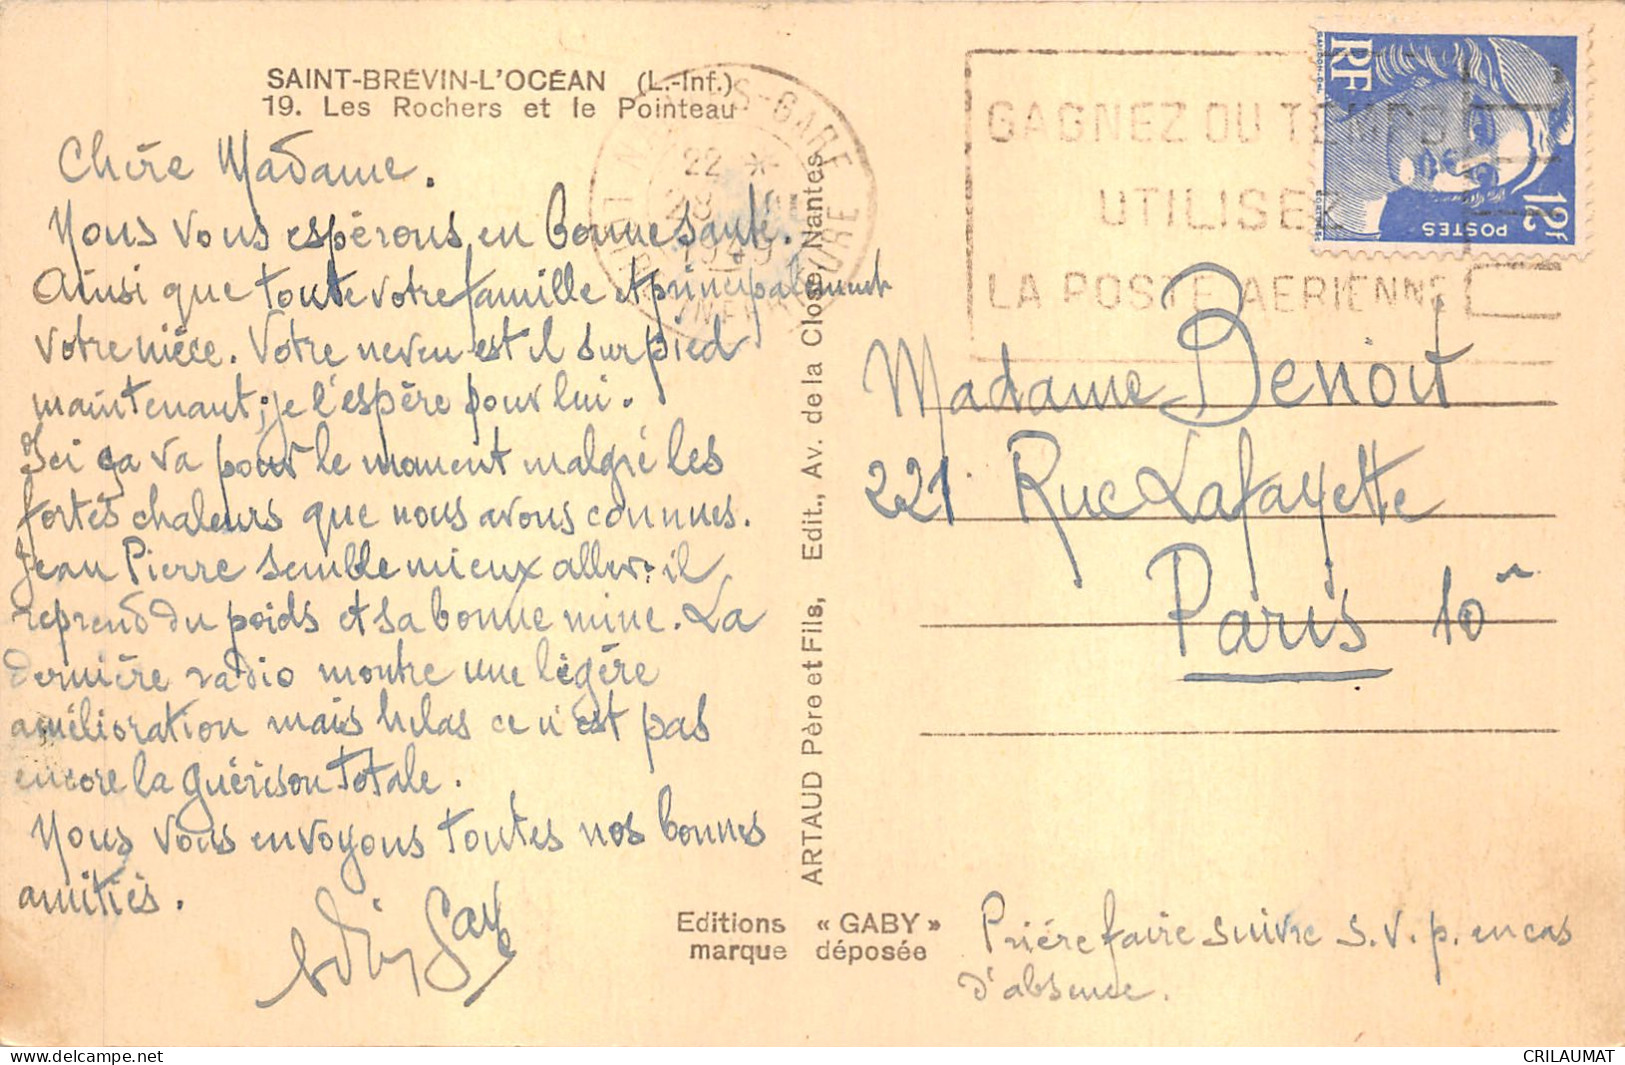 SAINT-BRÉVIN-L'OCÉAN (L.-Inf.)
19. Les Rochers et le Pointeau
Chère Madame.
Nous vous espérons en bonne santé.
Ainsi que toute votre famille et principalement
votre nièce. Votre neveu est il sur pied
maintenant; je l'espère pour lui.
Ici ça va pour le moment malgré les
fortes chaleurs que nous avons connues.
Jean Pierre semble mieux aller. il
reprend du poids et sa bonne mine. La
dernière radio montre une légère
amélioration mais hélas ce n'est pas
encore la guérison totale.
Nous vous envoyons toutes nos bonnes
amitiés.
ARTAUD Père et Fils, Edit., Av. de la Close, Nantes
Editions « GABY »
marque déposée
S-GARE
22 *
1949
GAGNEZ DU TEMPS
UTILISEZ
LA POSTE AERIENNE
RF
POSTES
12F
Madame Benoit
221 Rue Lafayette
Paris 10
Prière faire suivre s.v.p. en cas
d'absence.
CRILAUMAT